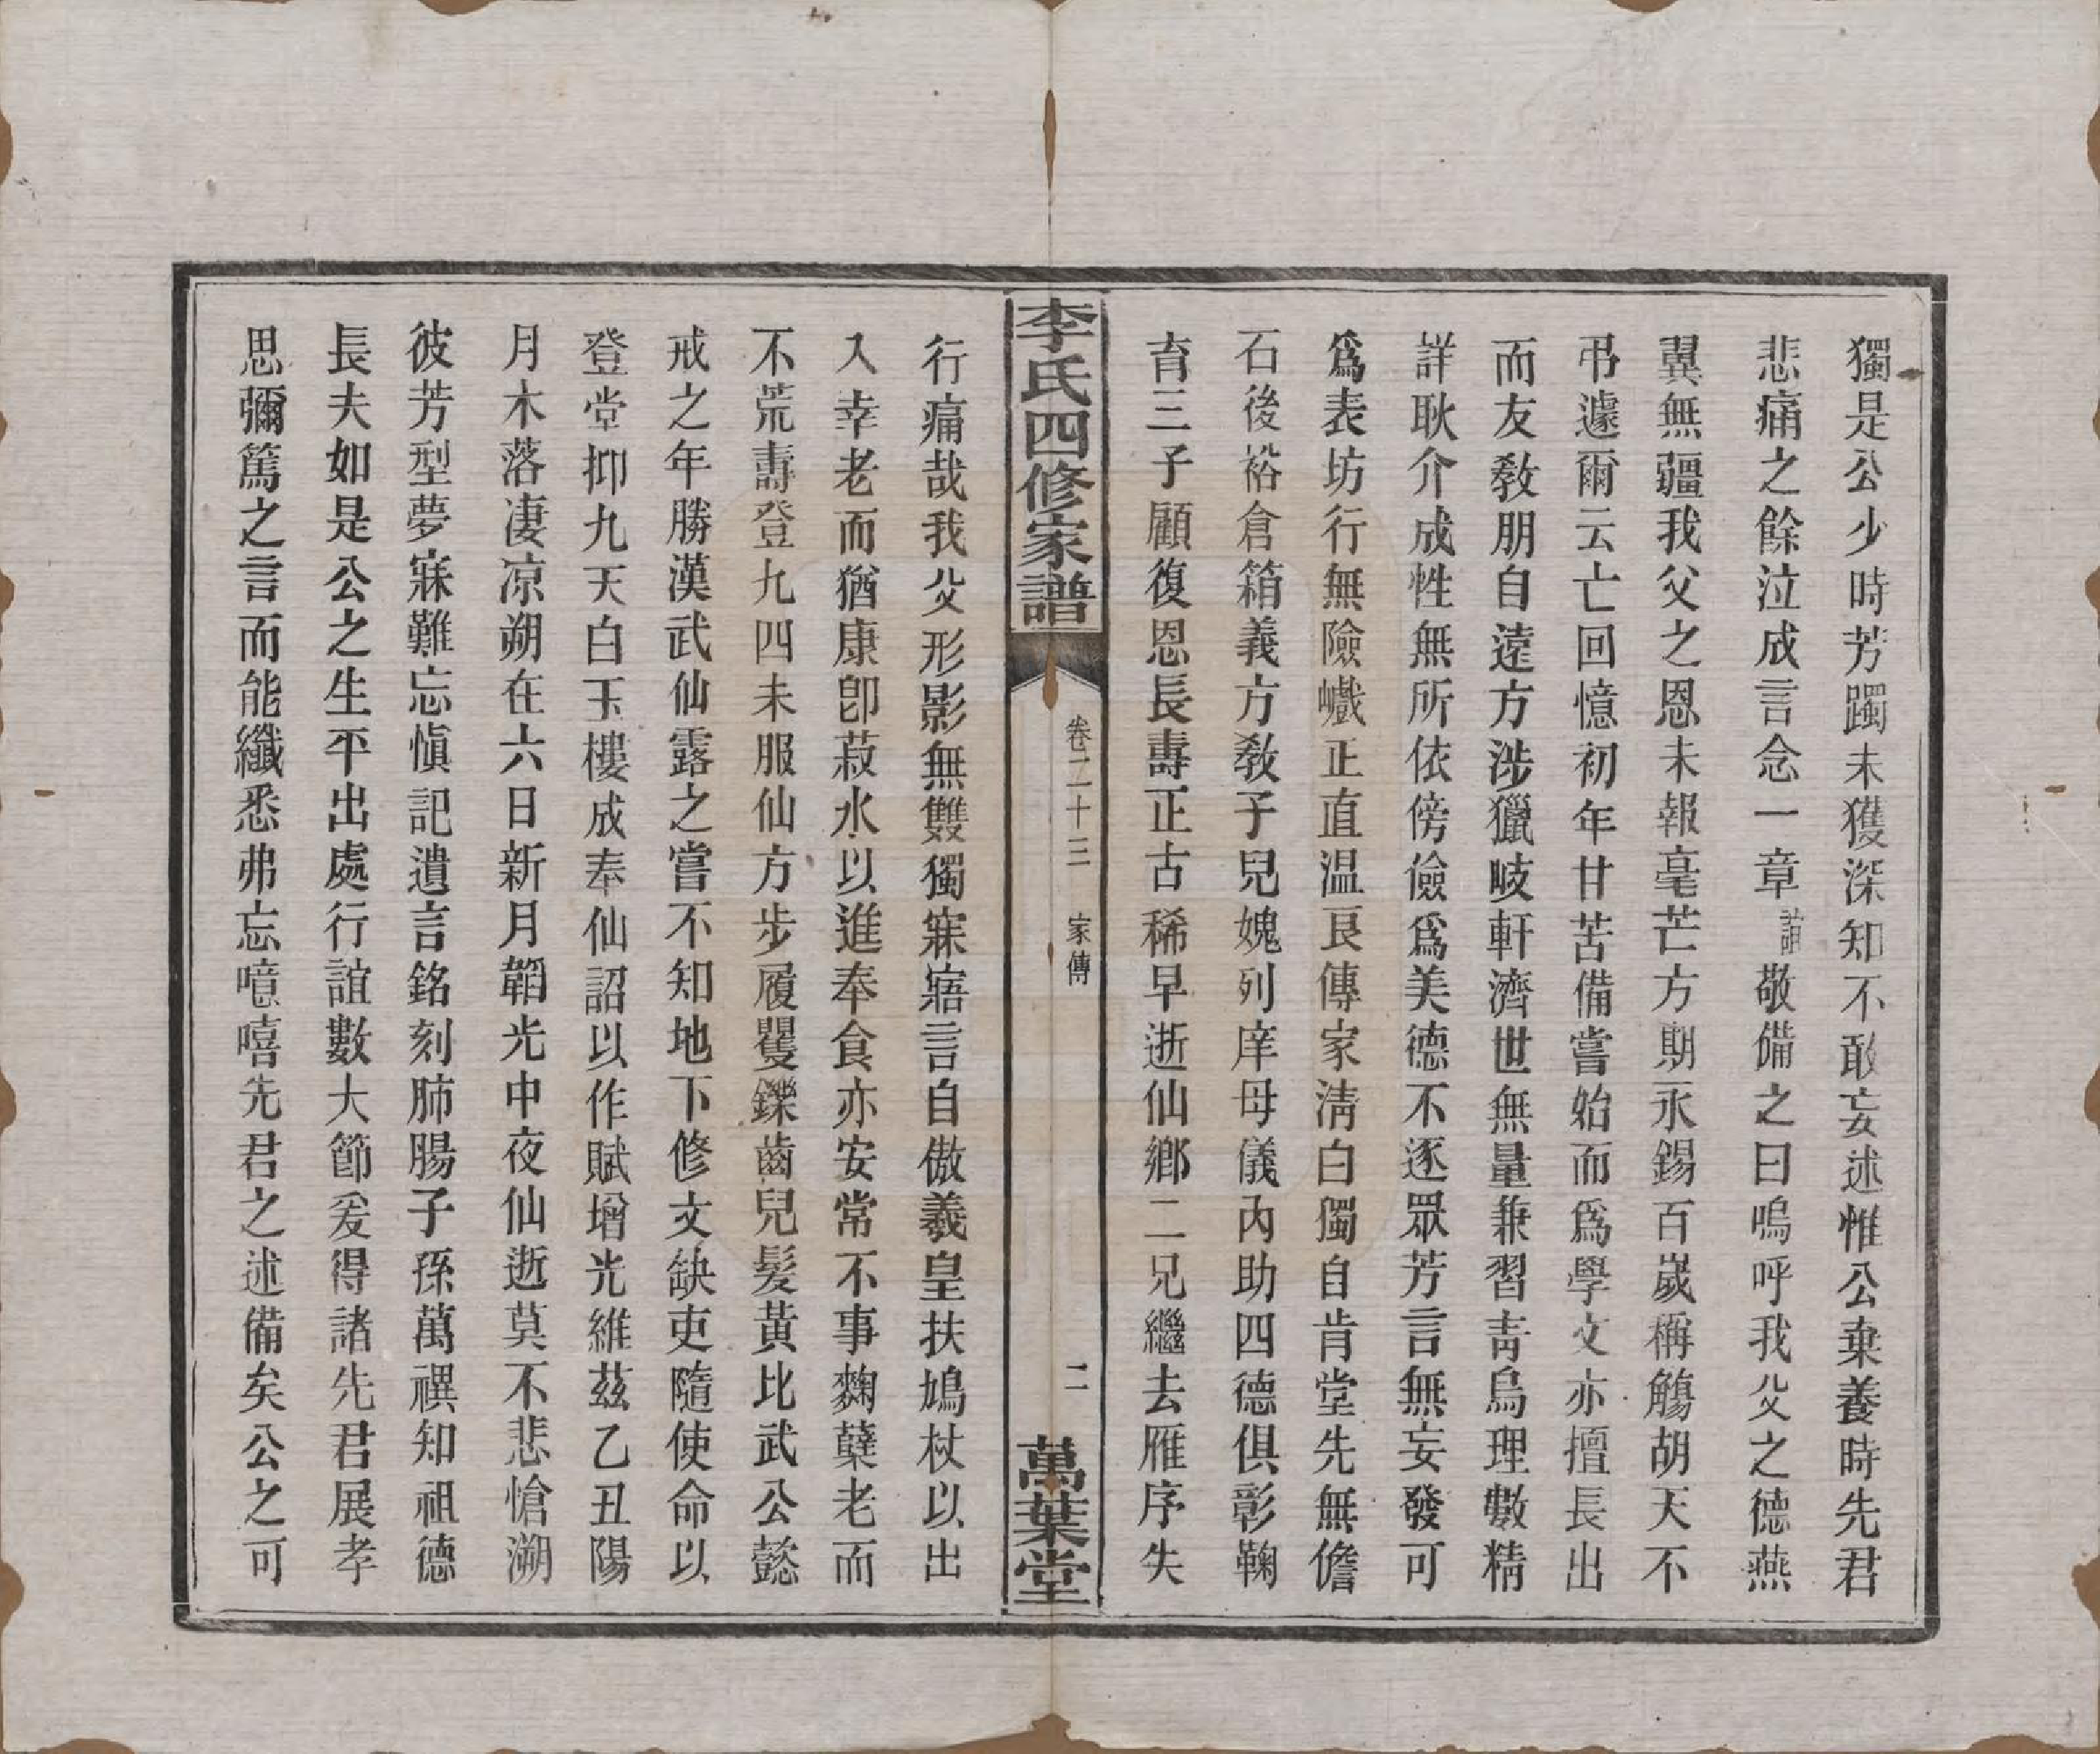 獨是公少時芳躅未獲深知不敢妄述惟公棄養時先君
悲痛之餘泣成言念一章謹敬備之曰嗚呼我父之德燕
翼無疆我父之恩未報毫芒方期永錫百歲稱觴胡天不
弔遽爾云亡回憶初年甘苦備嘗始而爲學文亦擅長出
而友教朋自遠方涉獵岐軒濟世無量兼習青烏理數精
詳耿介成性無所依傍儉爲美德不逐眾芳言無妄發可
爲表坊行無險巇正直温良傳家淸白獨自肯堂先無儋
石後裕倉箱義方教子兒媿列庠母儀內助四德俱彰鞠
育三子顧復恩長壽正古稀早逝仙鄉二兄繼去雁序失
李氏四修家譜
卷二十三 家傳
二
萬葉堂
行痛哉我父形影無雙獨寐寤言自傲羲皇扶鳩杖以出
入幸老而猶康卽菽水以進奉食亦安常不事麴糵老而
不荒壽登九四未服仙方步履矍鑠齒兒髮黃比武公懿
戒之年勝漢武仙露之嘗不知地下修文缺吏隨使命以
登堂抑九天白玉樓成奉仙詔以作賦增光維茲乙丑陽
月木落凄凉朔在六日新月韜光中夜仙逝莫不悲愴溯
彼芳型夢寐難忘愼記遺言銘刻肺腸子孫萬禩知祖德
長夫如是公之生平出處行誼數大節爰得諸先君展孝
思彌篤之言而能纖悉弗忘噫嘻先君之述備矣公之可